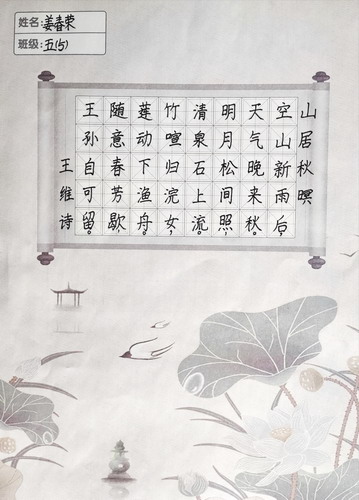 姓名:姜春荣
班级:五(5)
山居秋暝
空山新雨后，
天气晚来秋。
明月松间照，
清泉石上流。
竹喧归浣女，
莲动下渔舟。
随意春芳歇，
王孙自可留。
王维诗